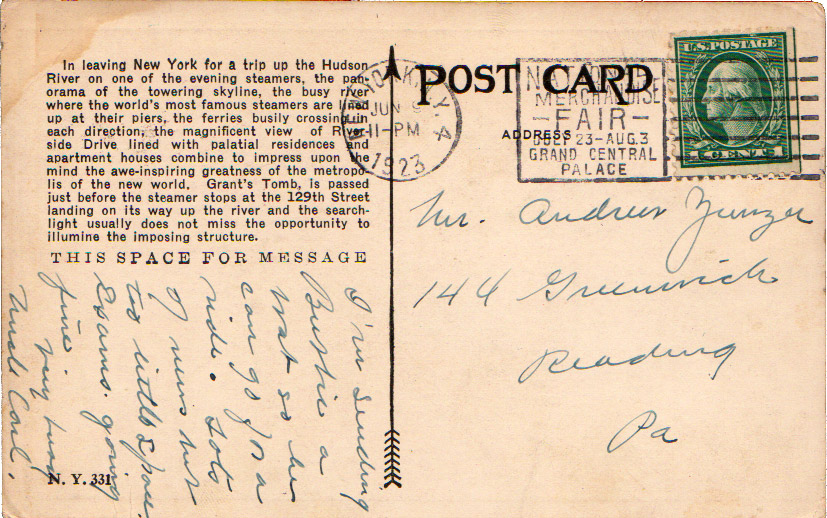 In leaving New York for a trip up the Hudson
River on one of the evening steamers, the pan-
orama of the towering skyline, the busy river
where the world's most famous steamers are lined
up at their piers, the ferries busily crossing in
each direction, the magnificent view of River-
side Drive lined with palatial residences and
apartment houses combine to impress upon the
mind the awe-inspiring greatness of the metropo-
lis of the new world. Grant's Tomb, is passed
just before the steamer stops at the 129th Street
landing on its way up the river and the search-
light usually does not miss the opportunity to
illumine the imposing structure.
THIS SPACE FOR MESSAGE
I'm sending
Buster a
boat so he
can go for a
ride. Lots
of news but
too little space
Exams going
fine.
Uncle Carl.
N. Y. 331
POST CARD
ADDRESS
JUN 9
11-PM
1923
N.Y.
MERCHANDISE
FAIR
JULY 23-AUG.3
GRAND CENTRAL
PALACE
U.S. POSTAGE
1 CENT 1
Mr. Andrew Zunzer
144 Greenwich
Reading
Pa